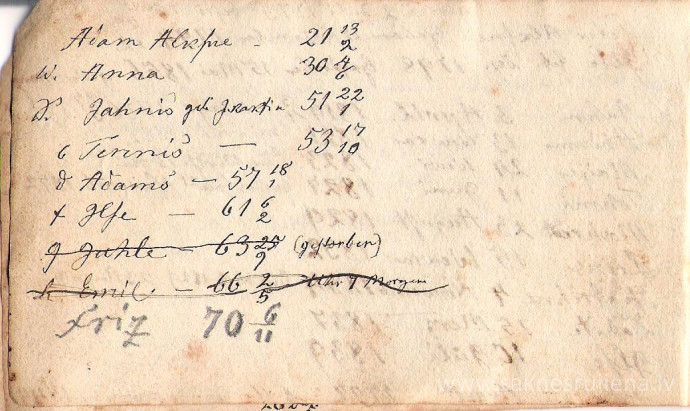 Adam Alksne - 21 13/2
w. Anna 30 4/6
S. Jahnis geb 51 22/1
c Tennis — 53 17/10
d Adams — 57 18/1
f Ilse — 61 6/2
g Juhle - 63 25/9 (gestorben)
h Emil. - 66 2/5 Uhr 7 Morgens
Friz 70 6/11
www.saknesrujiena.lv